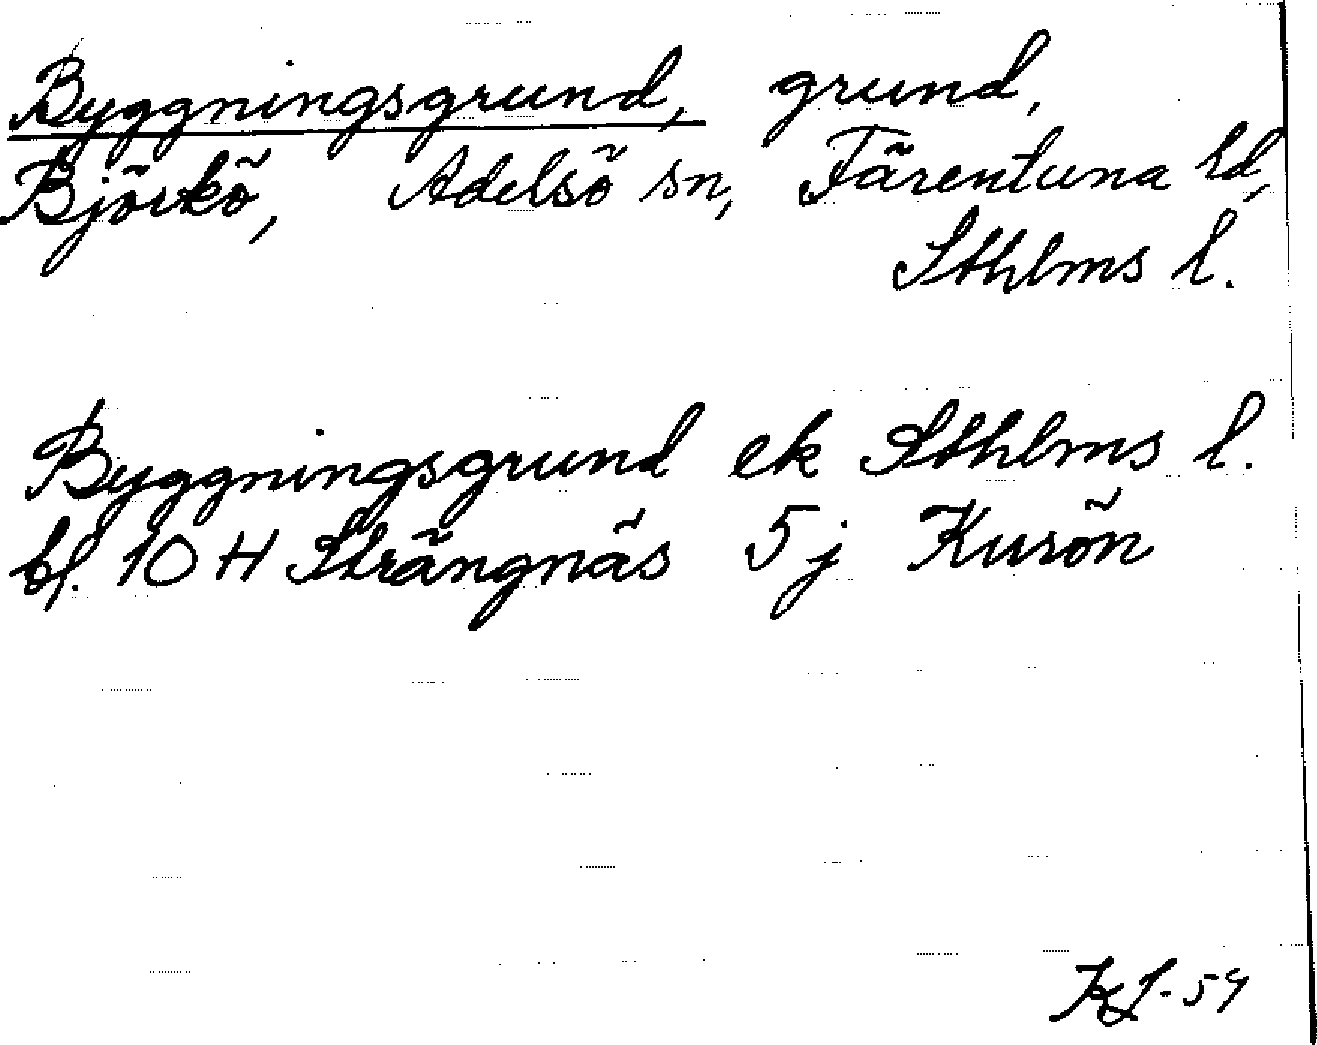 Byggningsgrund, grund,
Björkö, Adelsö sn, Färentuna hd,
Sthlms l.
Byggningsgrund ek Sthlms l.
bl. 10 H Strängnäs 5 j Kurön